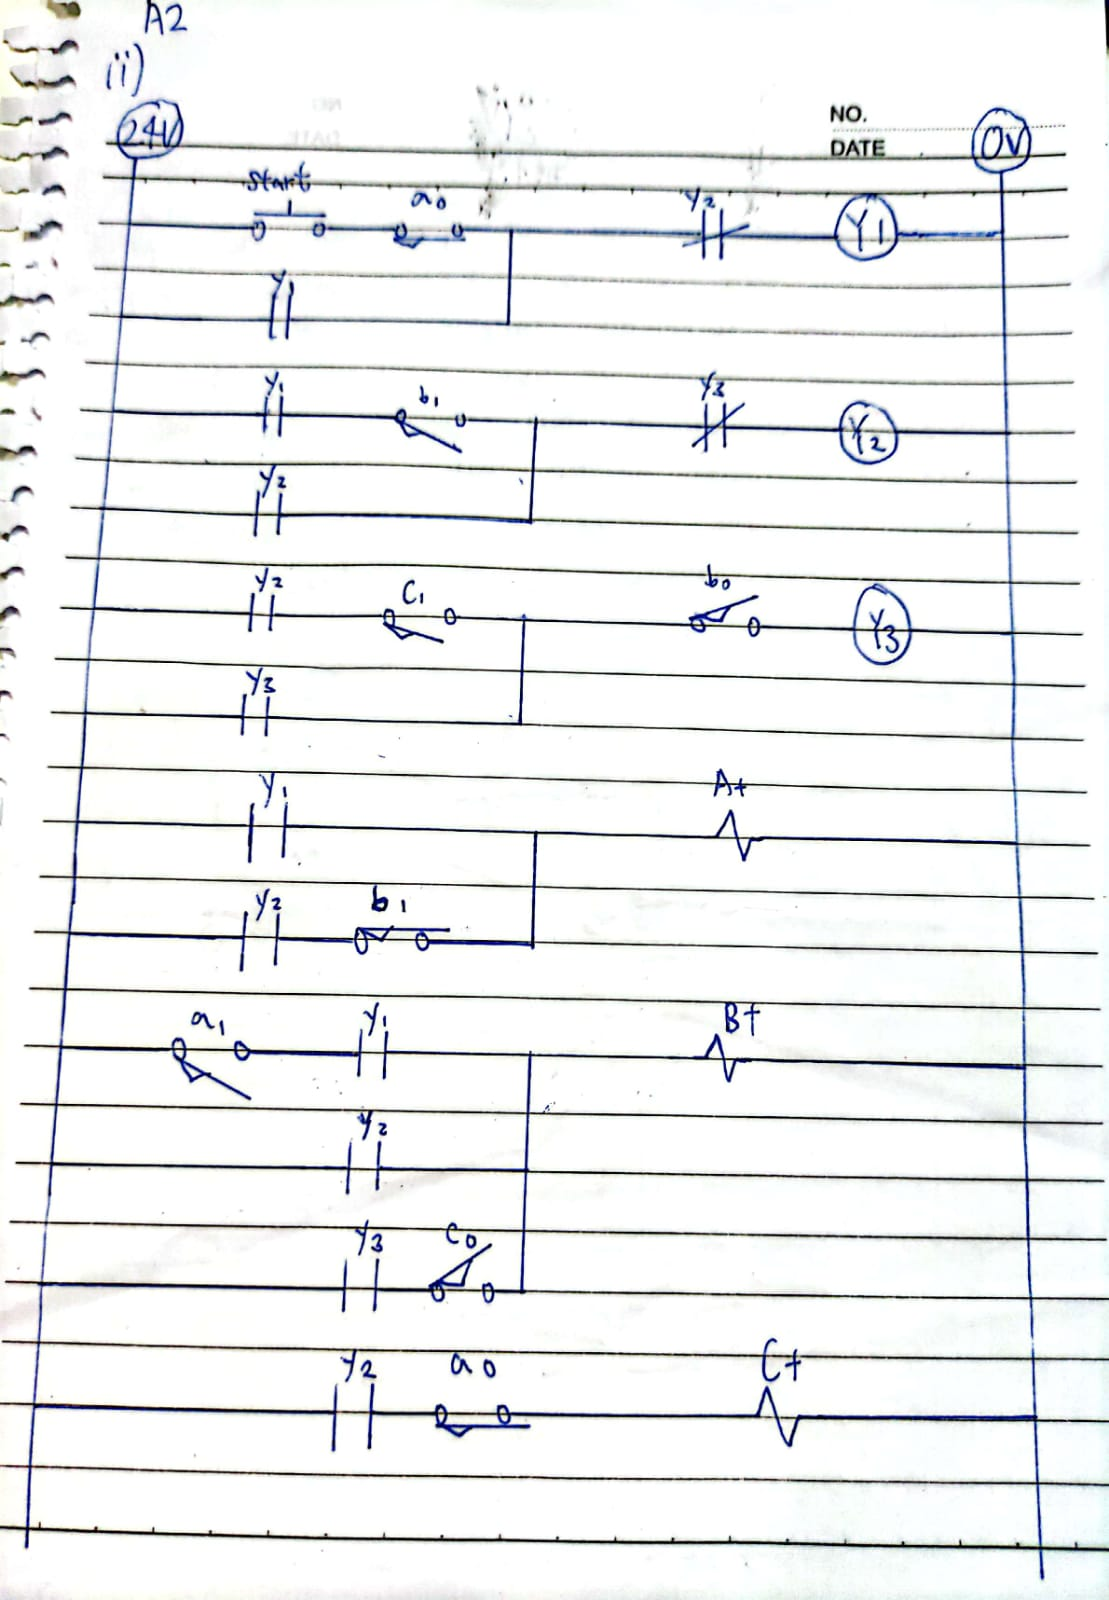 A2
ii)
NO.
DATE
24V
0V
Start a0 Y2 Y1
Y1
Y1 b1 Y3 Y2
Y2
Y2 C1 b0 Y3
Y3
Y1 A+
Y2 b1
a1 Y1 B+
Y2
Y3 C0
Y2 a0 C+